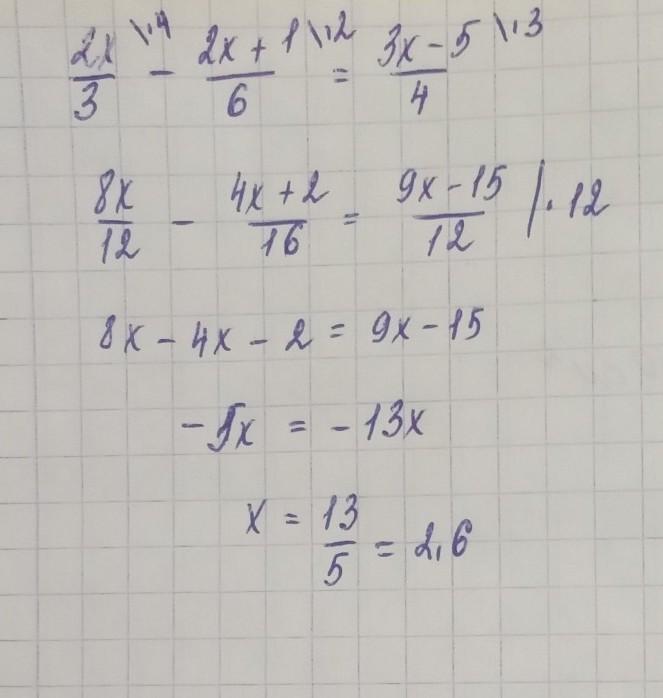 2x/3 \·4 - 2x + 1/6 \·2 = 3x - 5/4 \·3
8x/12 - 4x + 2/16 = 9x - 15/12 |· 12
8x - 4x - 2 = 9x - 15
-5x = -13x
x = 13/5 = 2,6